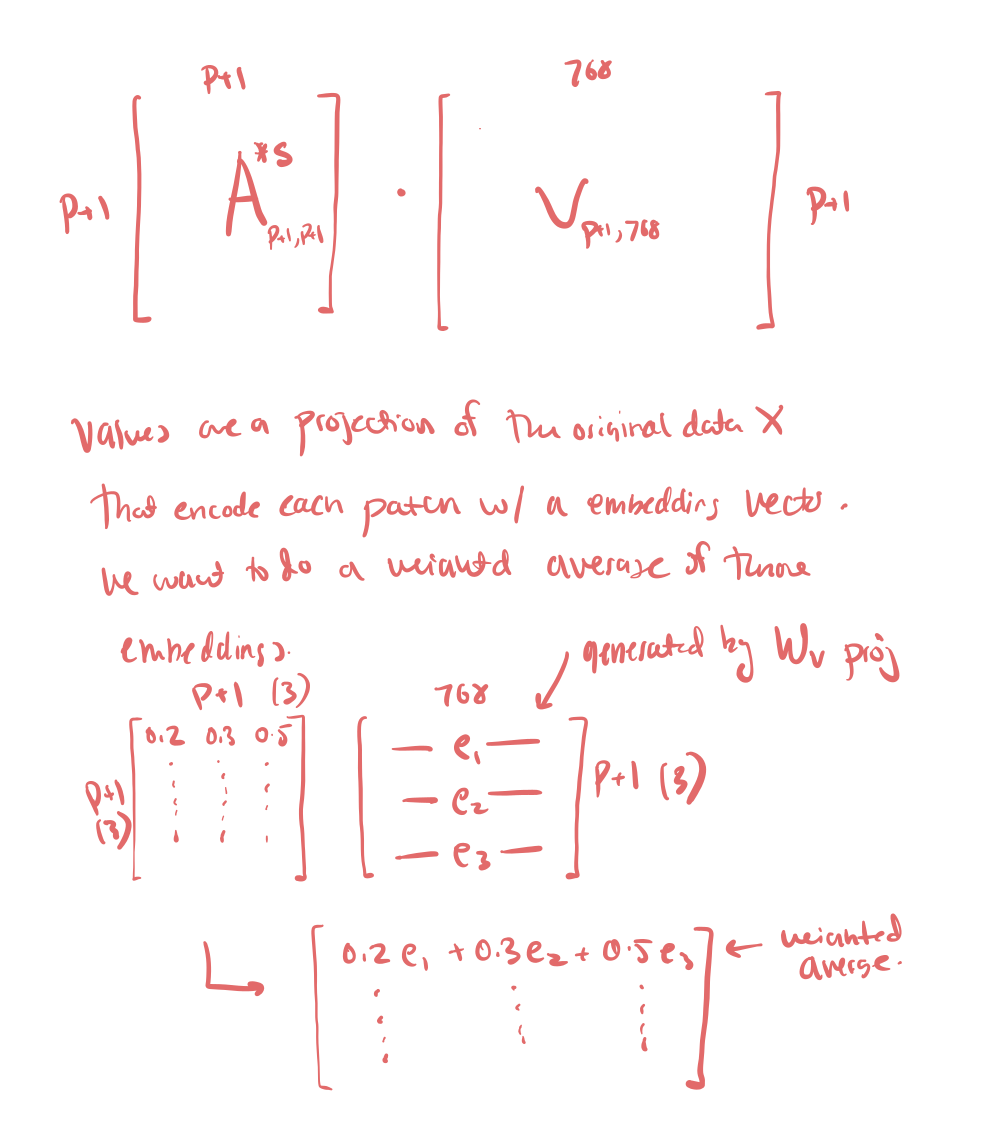 P+1 768
P+1 A*s P+1,P+1 · V P+1,768 P+1
Values are a projection of the original data X
That encode each patch w/ a embedding vector.
we want to do a weighted average of those
embeddings.
generated by Wv proj
P+1 (3) 768
0.2 0.3 0.5
P+1 (3)
e1
e2
e3
P+1 (3)
0.2 e1 + 0.3 e2 + 0.5 e3
weighted
average.